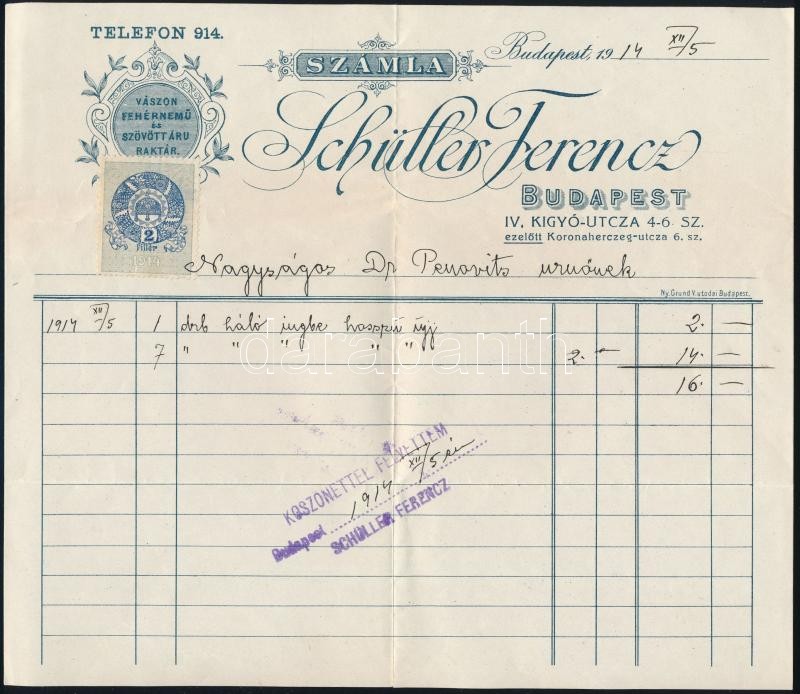 TELEFON 914.
SZÁMLA
Budapest, 1914 XII/5
VÁSZON
FEHÉRNEMŰ
és
SZÖVÖTTÁRU
RAKTÁR.
Schüller Ferencz
BUDAPEST
IV, KIGYÓ-UTCZA 4-6 SZ.
ezelőtt Koronaherczeg-utcza 6. sz.
2
fillér
1914
Nagyságos Dr Penovits urnőnek
Ny. Grund V. utodai Budapest.
1914 XII/5 1 drb háló ingbe hosszú ujj 2. —
7 " " " " " 2. — 14. —
16. —
darabanth
KÖSZÖNETTEL FELVETTEM
Budapest 1914 XII/5 én
SCHÜLLER FERENCZ